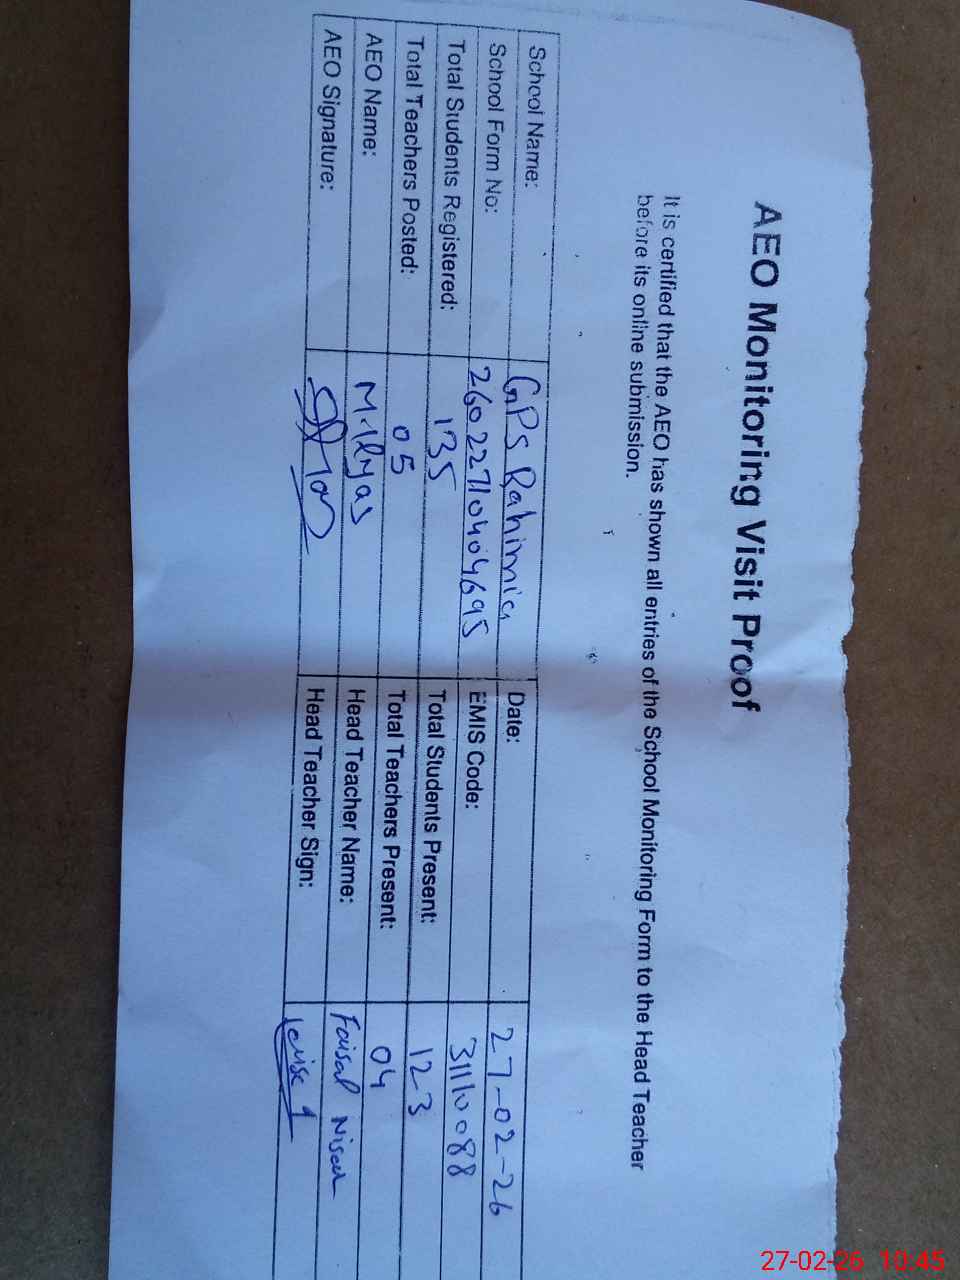 AEO Monitoring Visit Proof
It is certified that the AEO has shown all entries of the School Monitoring Form to the Head Teacher
before its online submission.
School Name: GPS Rahimia Date: 27-02-26
School Form No: 2602271040404695 EMIS Code: 31110088
Total Students Registered: 135 Total Students Present: 123
Total Teachers Posted: 05 Total Teachers Present: 04
AEO Name: M. Ilyas Head Teacher Name: Faisal Nisar
AEO Signature: Head Teacher Sign:
27-02-26 10:45